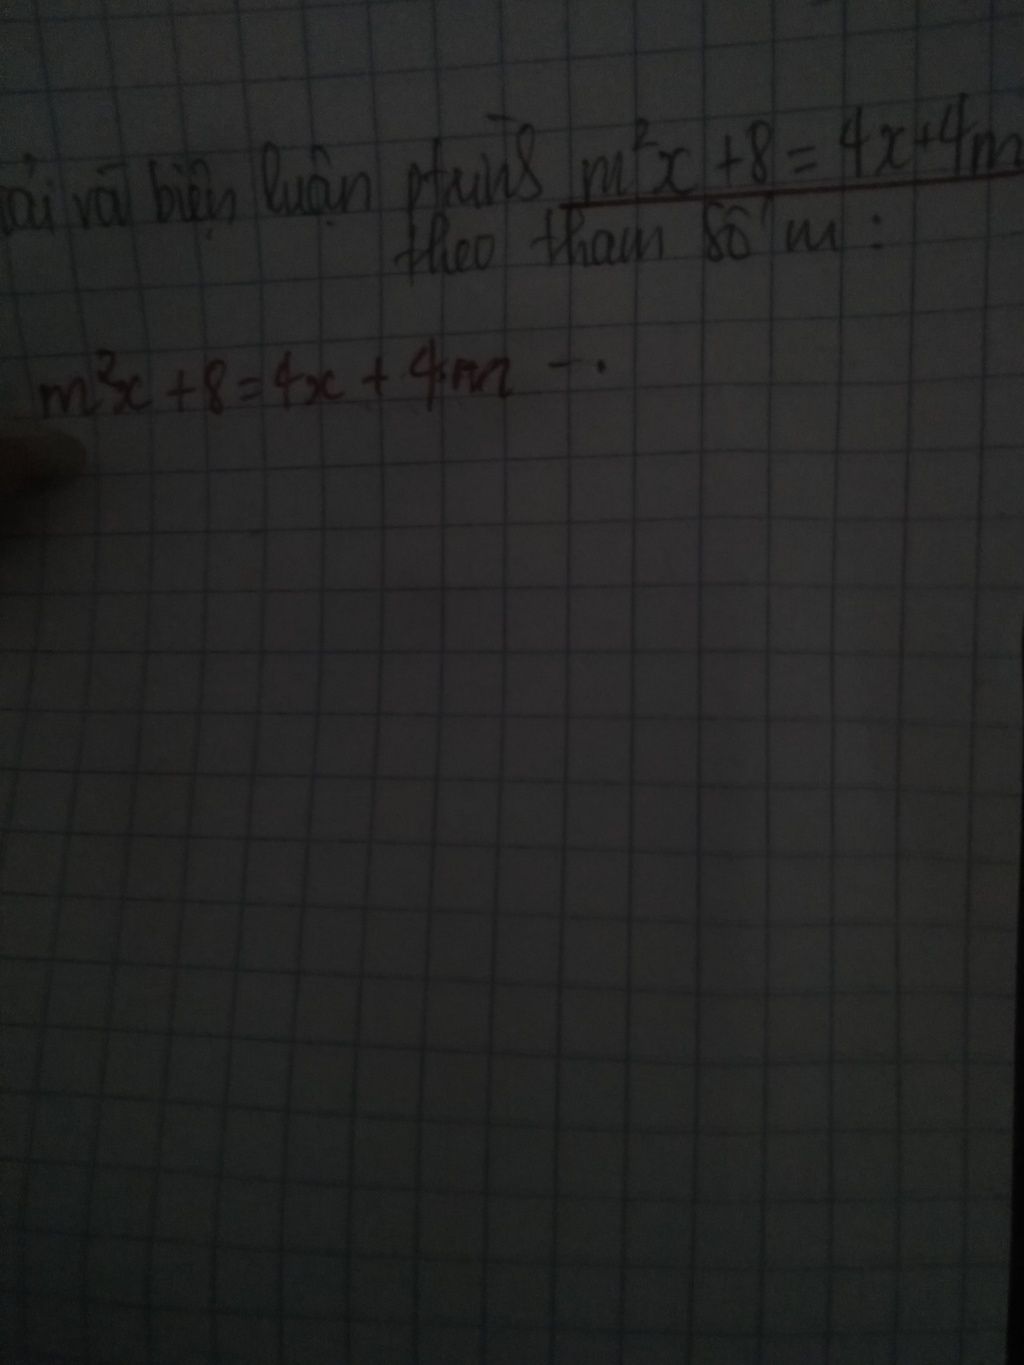 ải và biện luận ptrình m²x + 8 = 4x + 4m
theo tham số m :
m²x + 8 = 4x + 4m